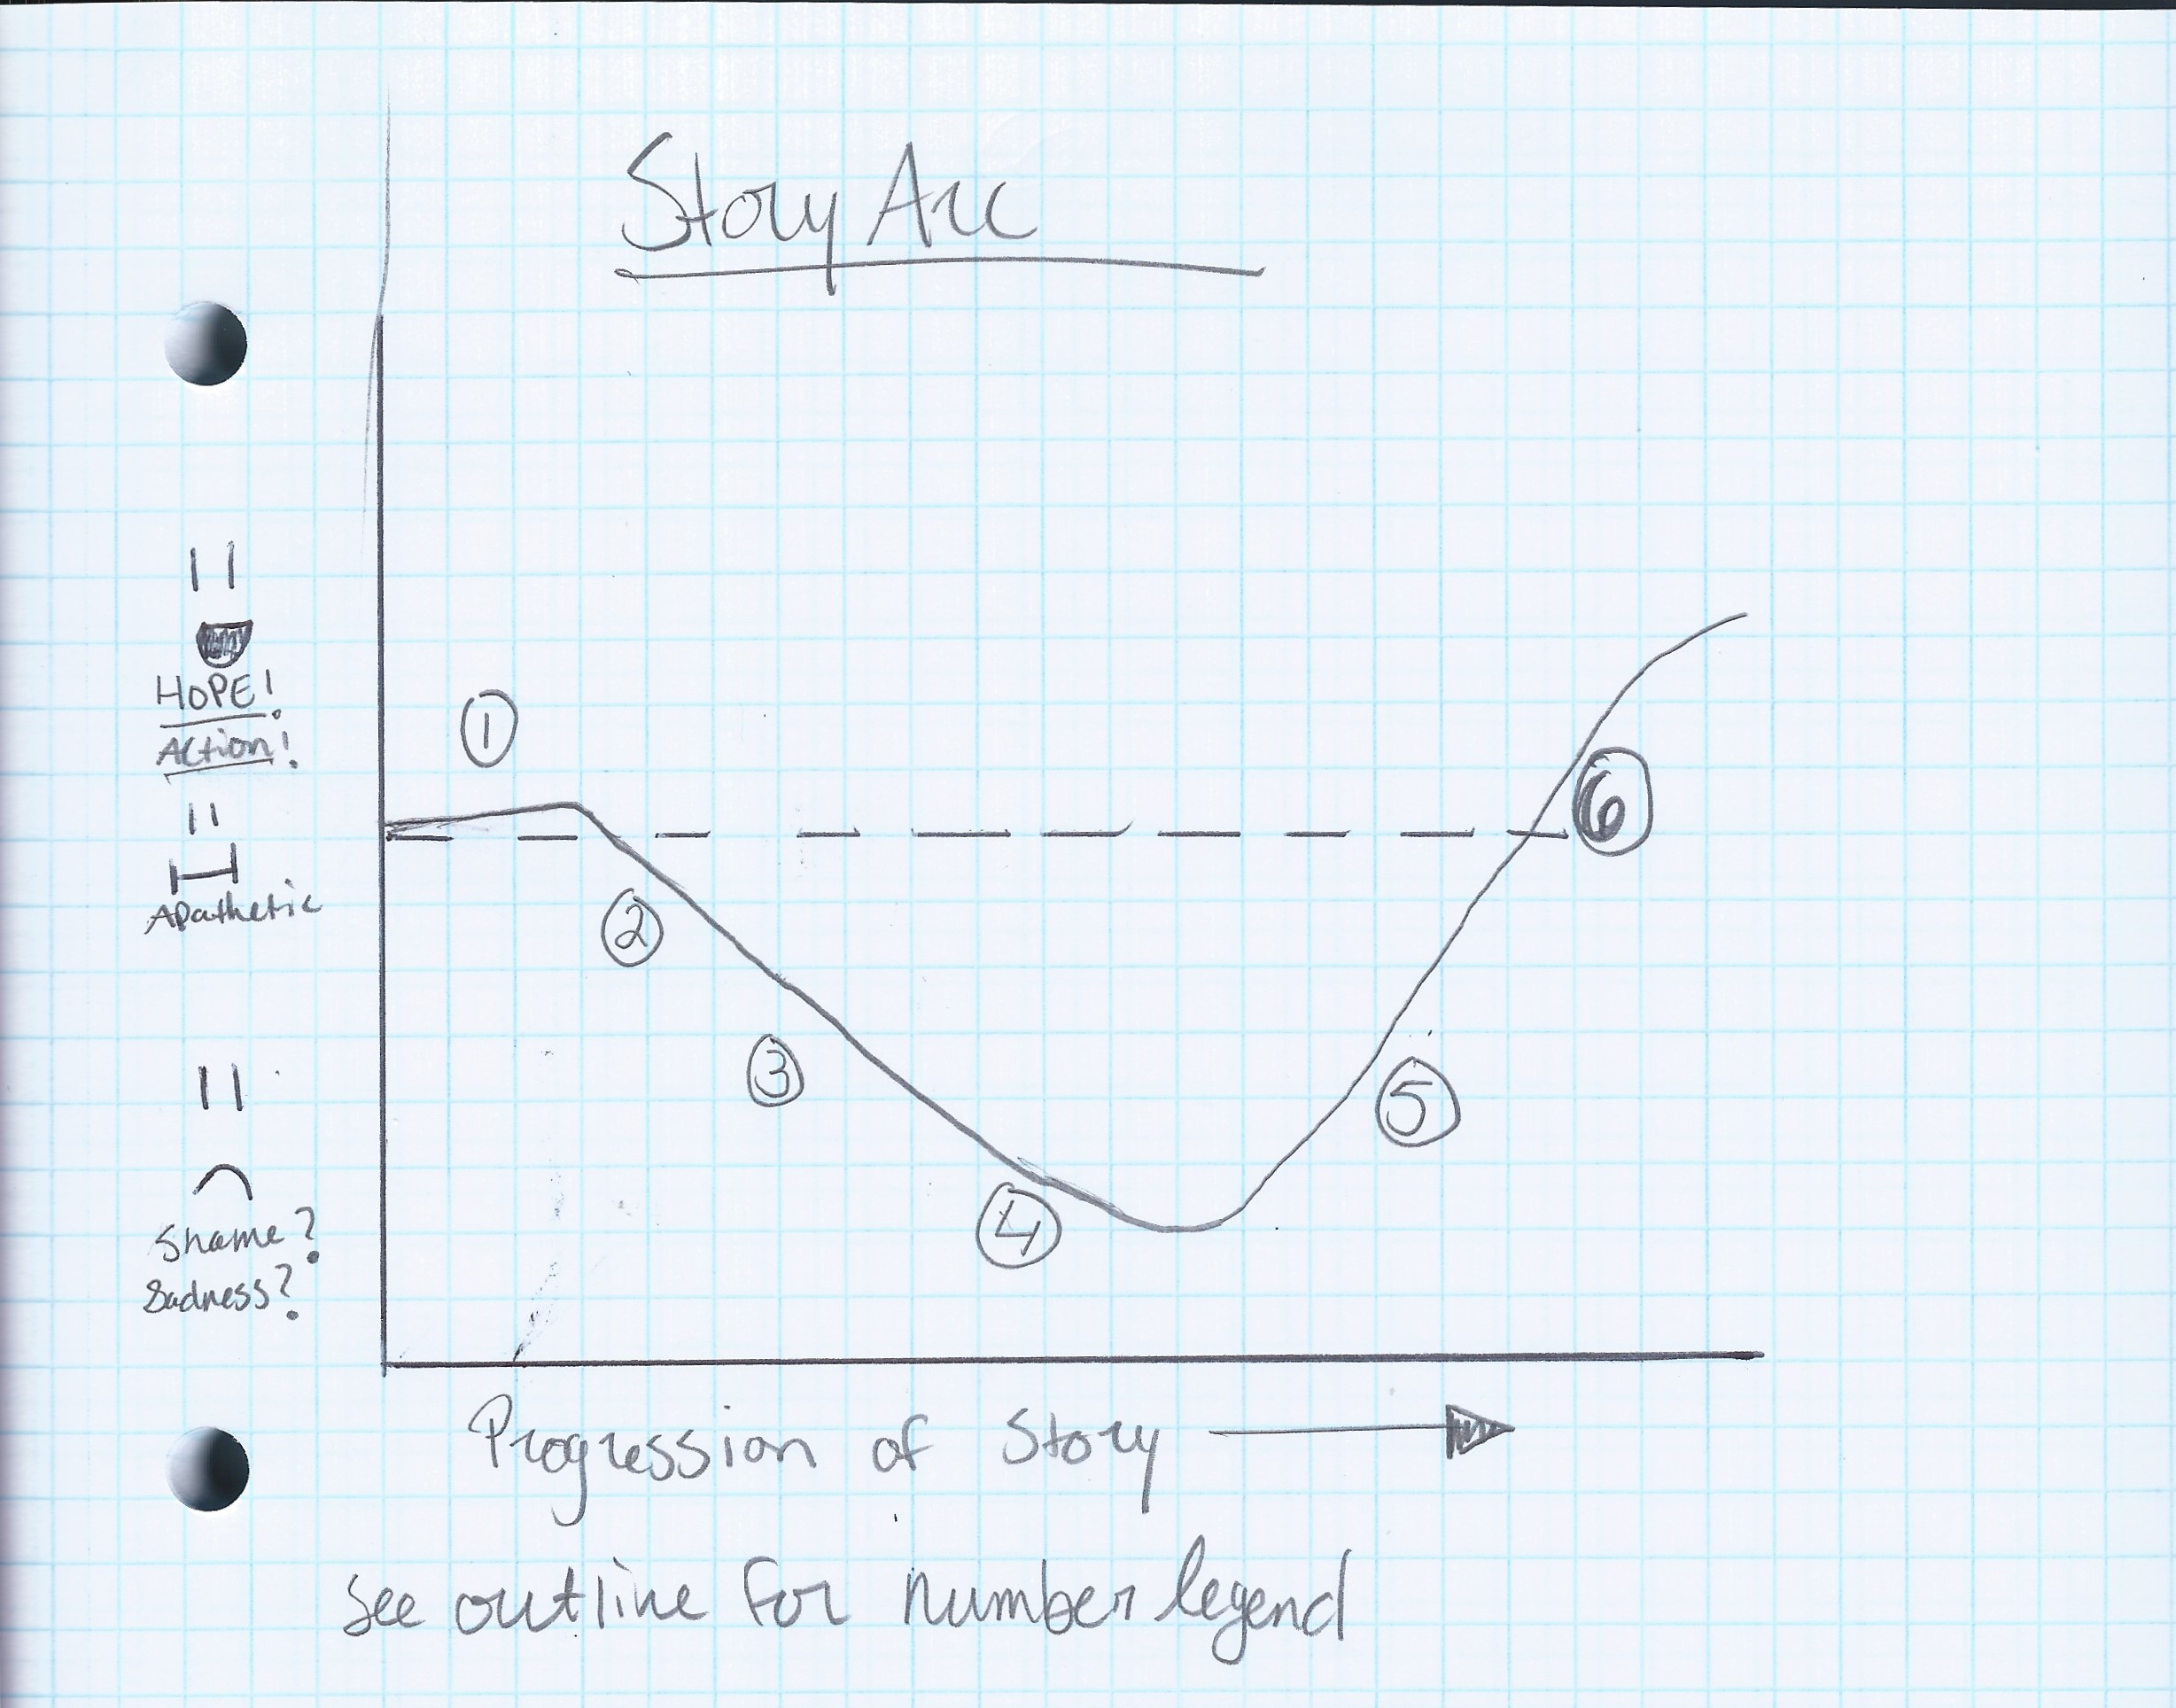 Story Arc
HOPE!
Action!
①
Apathetic
②
③
④
⑤
⑥
Shame?
Sadness?
Progression of Story
See outline for number legend